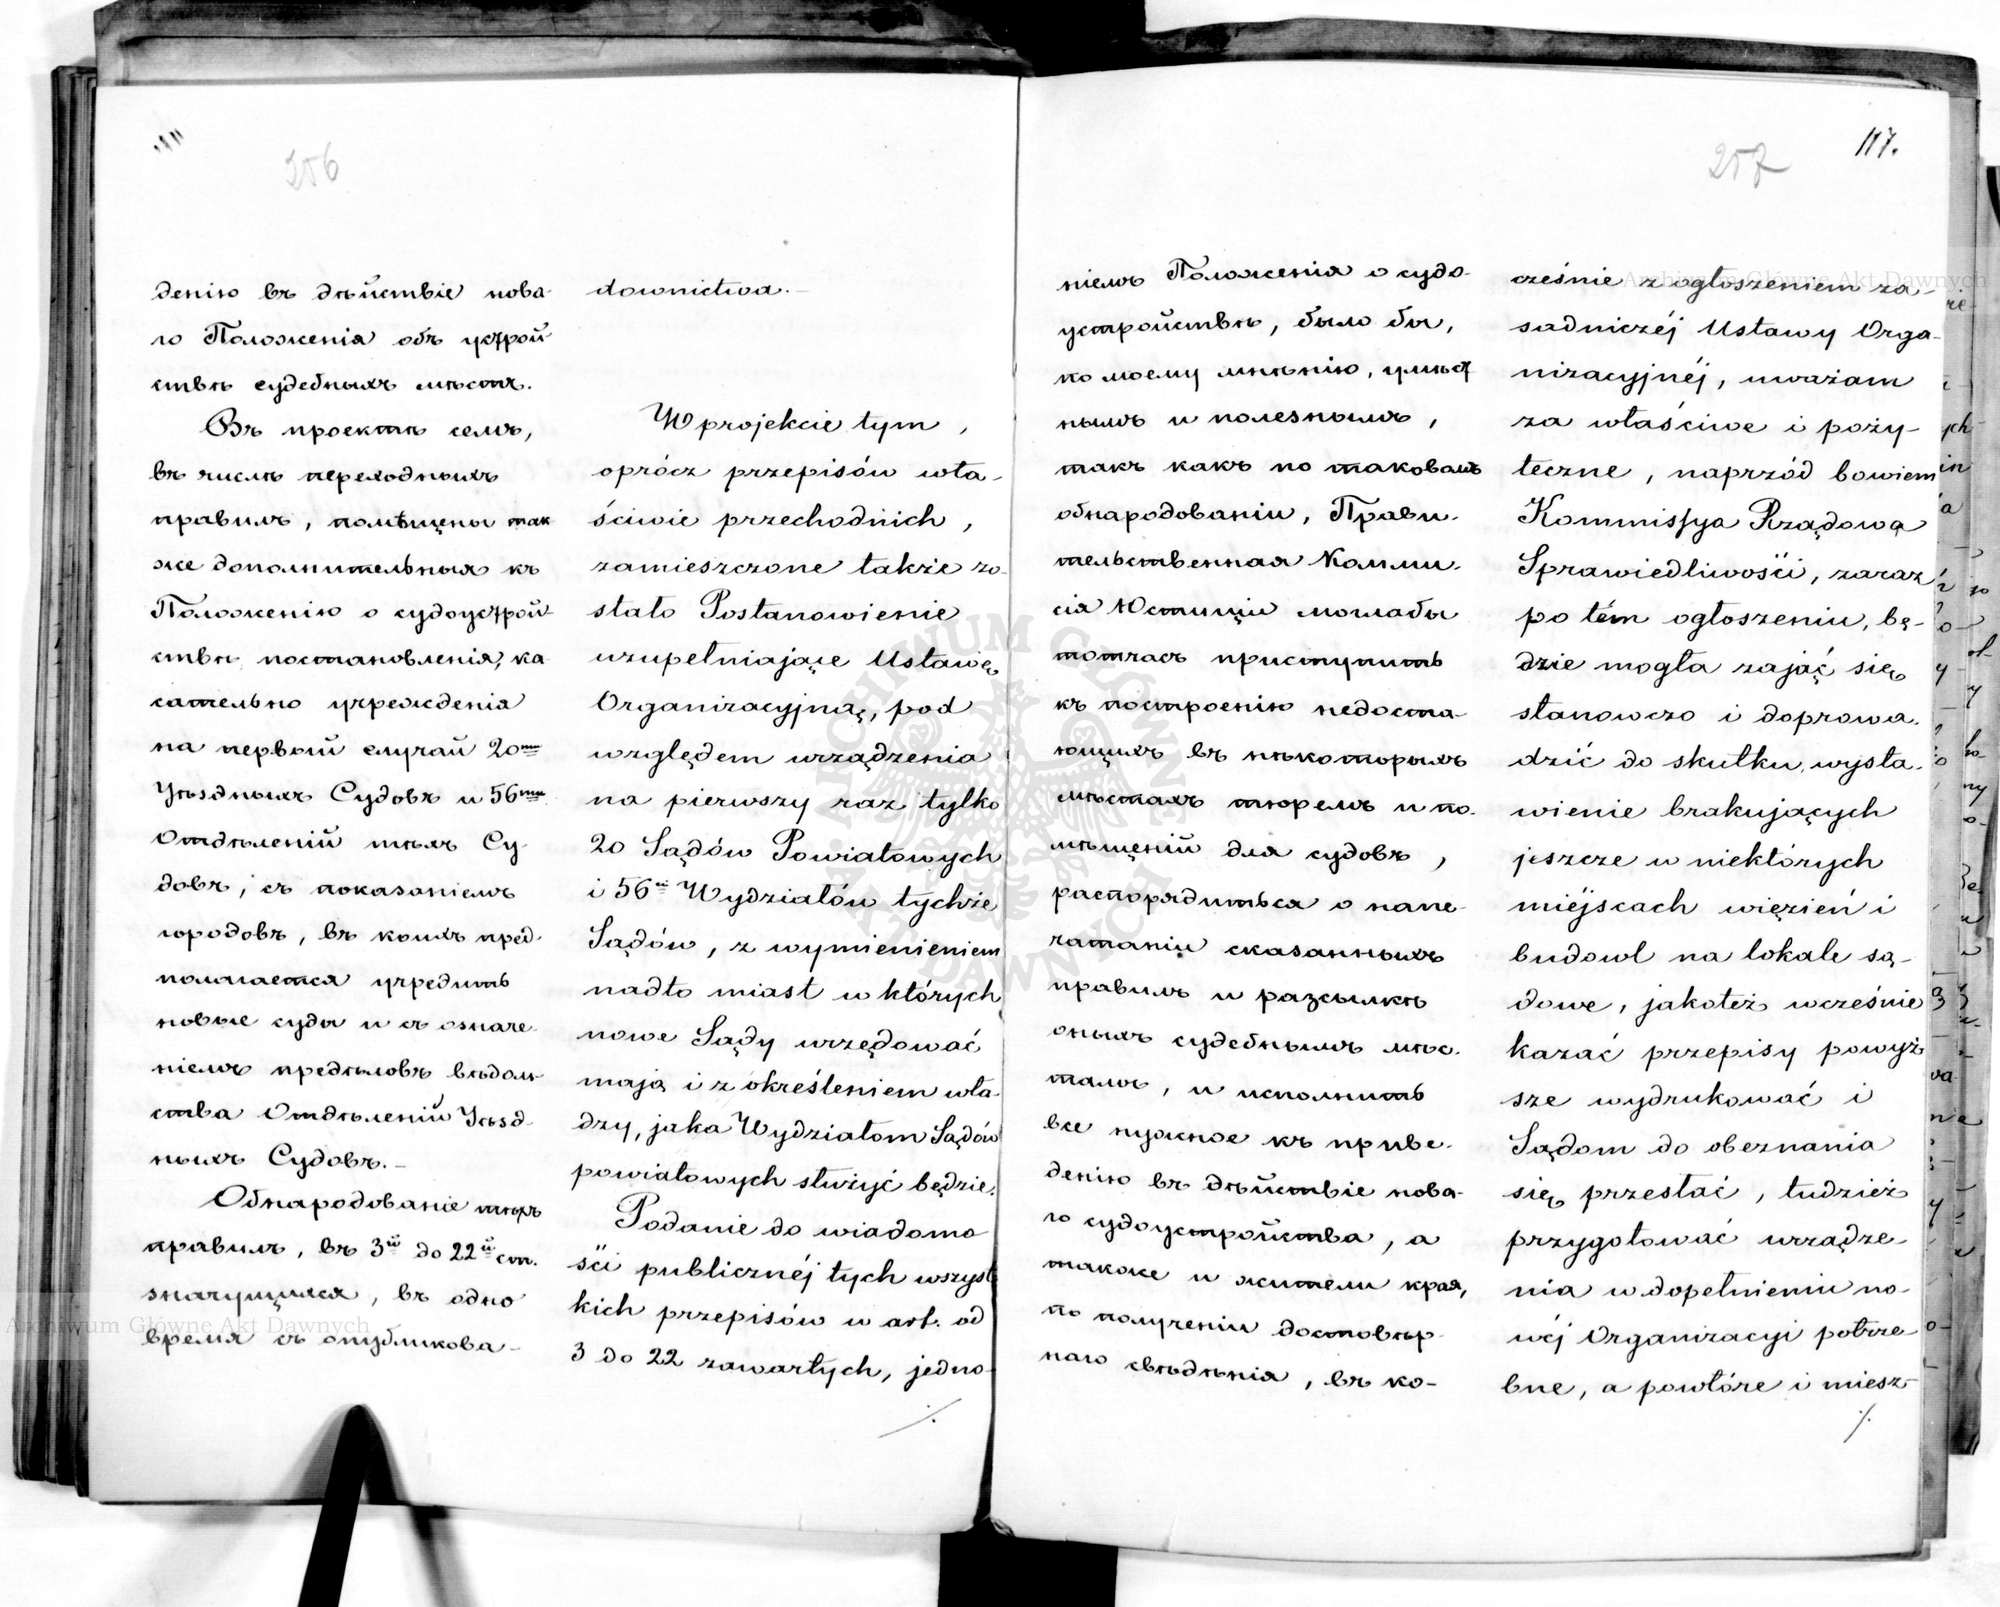 256
денію въ дѣйствіе нова-
го Положенія объ устрой
ствѣ судебныхъ мѣстъ.
Въ проектѣ семъ,
въ числѣ переходныхъ
правилъ, помѣщены так
же дополнительныя къ
Положенію о судоустрой-
ствѣ постановленія, ка-
сательно учрежденія
на первый случай 20ти
Уѣздныхъ Судовъ и 56ти
Отдѣленій тѣхъ Су-
довъ, съ показаніемъ
городовъ, въ коихъ пред-
полагается учредить
новые суды и съ означе-
ніемъ предѣловъ вѣдом-
ства Отдѣленій Уѣзд-
ныхъ Судовъ.–
Обнародованіе тѣхъ
правилъ, въ 3й до 22й ст.
значущихся, въ одно
время съ опубликова-
downictwa.–
W projekcie tym,
oprócz przepisów wła-
ściwie przechodnich,
zamieszczone także zo-
stało Postanowienie
uzupełniające Ustawę
Organizacyjną, pod
względem urządzenia
na pierwszy raz tylko
20 Sądów Powiatowych
i 56ciu Wydziałów tychże
Sądów, z wymienieniem
nadto miast w których
nowe Sądy urzędować
mają i z określeniem wła-
dzy, jaka Wydziałom Sądów
powiatowych służyć będzie.
Podanie do wiadomo
ści publicznéj tych wszyst
kich przepisów w art. od
3 do 22 zawartych, jedno-
./.
257
117.
ніемъ Положенія о судо-
устройствѣ, было бы,
по моему мнѣнію, умѣст
нымъ и полезнымъ,
такъ какъ по таковомъ
обнародованіи, Прави-
тельственная Комми-
сія Юстиціи моглабы
тотчасъ приступить
къ построенію недоста-
ющихъ въ нѣкоторыхъ
мѣстахъ тюремъ и по-
мѣщеній для судовъ,
распорядиться о напе-
чатаніи сказанныхъ
правилъ и разсылкѣ
оныхъ судебнымъ мѣс-
тамъ, и исполнить
все нужное къ приве-
денію въ дѣйствіе нова-
го судоустройства, а
также и жители края,
по полученіи достовѣр-
наго свѣдѣнія, въ ко-
cześnie z ogłoszeniem za-
sadniczéj Ustawy Orga-
nizacyjnéj, uważam
za właściwe i poży-
teczne, naprzód bowiem
Kommissya Rządowa
Sprawiedliwości, zaraz
po tém ogłoszeniu, bę-
dzie mogła zająć się
stanowczo i doprowa-
dzić do skutku, wysta-
wienie brakujących
jeszcze w niektórych
miéjscach więzień i
budowl na lokale są-
dowe, jakoteż wcześnie
kazać przepisy powyż
sze wydrukować i
Sądom do obeznania
się przesłać, tudzież
przygotować urządze-
nia w dopełnieniu no-
wéj Organizacyi potrze
bne, a powtóre i miesz-
./.
Archiwum Główne Akt Dawnych
Archiwum Główne Akt Dawnych
ARCHIWUM GŁÓWNE AKT DAWNYCH